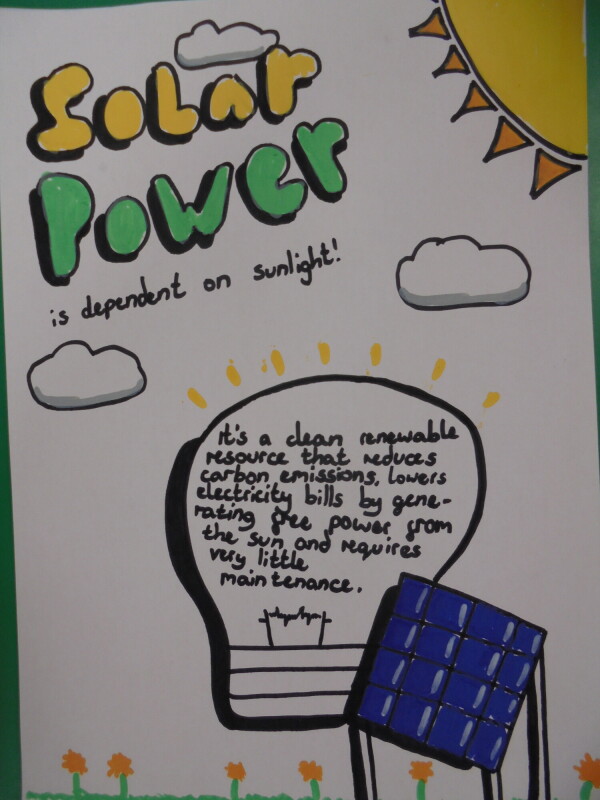 Solar
Power
is dependent on sunlight!
It's a clean renewable
resource that reduces
carbon emissions, lowers
electricity bills by gene-
rating free power from
the sun and requires
very little
maintenance.